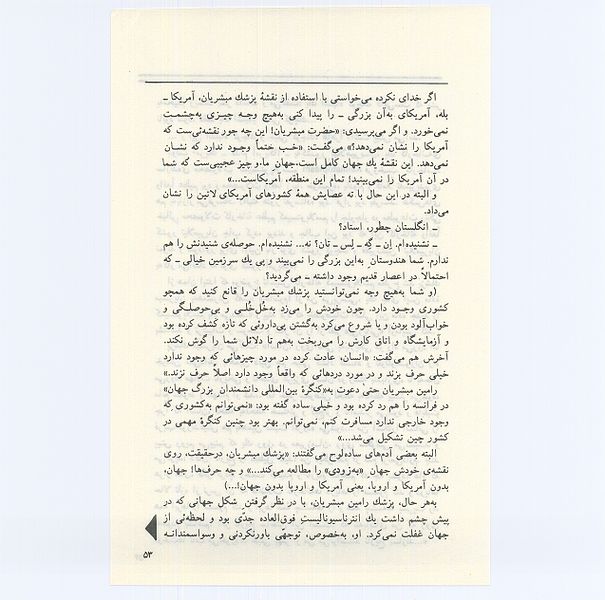 اگر خدای نکرده می‌خواستی با استفاده از نقشهٔ پزشك مبشریان، آمریکا ـ
بله، آمریکای به‌آن بزرگی ـ را پیدا کنی به‌هیچ وجه چیزی به‌چشمت
نمی‌خورد. و اگر می‌پرسیدی: «حضرت مبشریان! این چه جور نقشه‌ئی‌ست که
آمریکا را نشان نمی‌دهد؟» می‌گفت: «خب حتماً وجود ندارد که نشان
نمی‌دهد. این نقشهٔ یك جهان کامل است،جهان ِ ما.و چیز عجیبی‌ست که شما
در آن آمریکا را نمی‌بینید! تمام این منطقه، آمریکاست...»
و البته در این حال با ته عصایش همهٔ کشورهای آمریکای لاتین را نشان
می‌داد.
ـ انگلستان چطور، استاد؟
ـ نشنیده‌ام. اِن ـ گِه ـ لِس ـ تان؟ نه... نشنیده‌ام. حوصله‌ی شنیدنش را هم
ندارم. شما هندوستان ِ به‌این بزرگی را نمی‌بینید و پی یك سرزمین خیالی ـ که
احتمالاً در اعصار قدیم وجود داشته ـ می‌گردید؟
(و شما به‌هیچ وجه نمی‌توانستید پزشك مبشریان را قانع کنید که همچو
کشوری وجود دارد. چون خودش را می‌زد به‌خُل‌خُلی و بی‌حوصلگی و
خواب‌آلود بودن و یا شروع می‌کرد به‌گشتن پی‌داروئی که تازه کشف کرده بود
و آزمایشگاه و اتاق کارش را می‌ریخت به‌هم تا دلائل شما را گوش نکند.
آخرش هم می‌گفت: «انسان، عادت کرده در مورد چیزهائی که وجود ندارد
خیلی حرف بزند و در مورد دردهائی که واقعاً وجود دارد اصلاً حرف نزند.»
رامین مبشریان حتیٰ دعوت به«کنگرهٔ بین‌المللی دانشمندان ِ بزرگ جهان»
در فرانسه را هم رد کرده بود و خیلی ساده گفته بود: «نمی‌توانم به‌کشوری که
وجود خارجی ندارد مسافرت کنم، نمی‌توانم. بهتر بود چنین کنگرهٔ مهمی در
کشور چین تشکیل می‌شد...»
البته بعضی آدم‌های ساده‌لوح می‌گفتند: «پزشك مبشریان، درحقیقت، روی
نقشه‌ی خودش جهان ِ «به‌زودی» را مطالعه می‌کند...» و چه حرف‌ها! جهان،
بدون آمریکا و اروپا، یعنی آمریکا و اروپا بدون جهان!...)
به‌هر حال، پزشك رامین مبشریان، با در نظر گرفتن ِ شکل جهانی که در
پیش چشم داشت یك انترناسیونالیستِ فوق‌العاده جدّی بود و لحظه‌ئی از
جهان غفلت نمی‌کرد. او، به‌خصوص، توجهی باورنکردنی و وسواسمندانه
۵۳